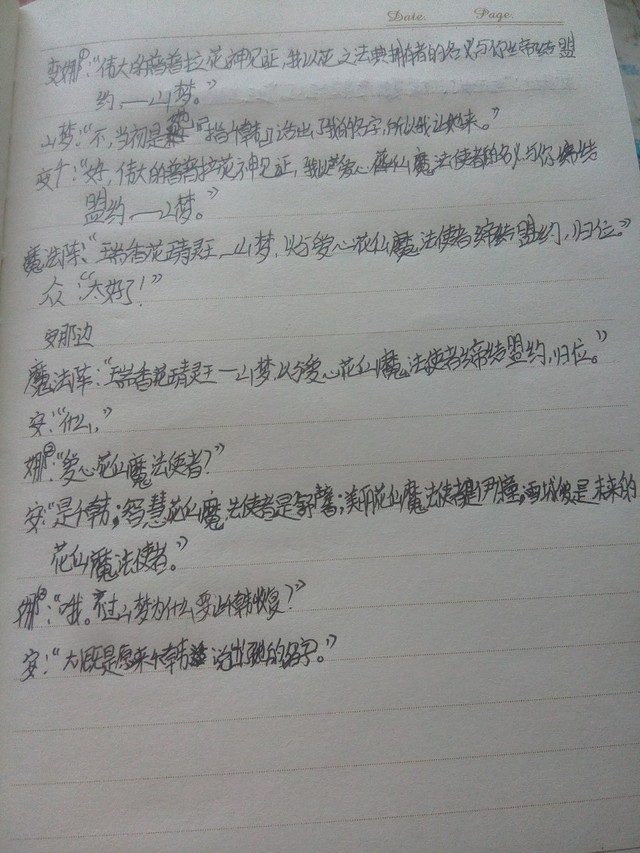 Date. Page.
变娜①:“伟大的普普拉花神见证,我以花之法典拥有者的名义与你缔结盟
约,一山梦。”
山梦:“不,当初是她『指韩』说出了我的名字,所以我让她来。”
变:“好,伟大的普普拉花神见证,我以爱心花仙魔法使者的名义与你缔结
盟约一山梦。”
魔法阵:“瑞香花精灵王一山梦,以与爱心花仙魔法使者缔结盟约,归位。”
众:“太好了!”
安那边
魔法阵:“瑞香花精灵王一山梦以与爱心花仙魔法使者缔结盟约,归位。”
安:“什么,”
娜②:“爱心花仙魔法使者?”
安:“是韩;智慧花仙魔法使者是馨;美丽花仙魔法使者是伊瞳,是未来的
花仙魔法使者。”
娜②:“哦。不过山梦为什么要让韩恢复?”
安:“大既是愿来韩说出她的名字。”